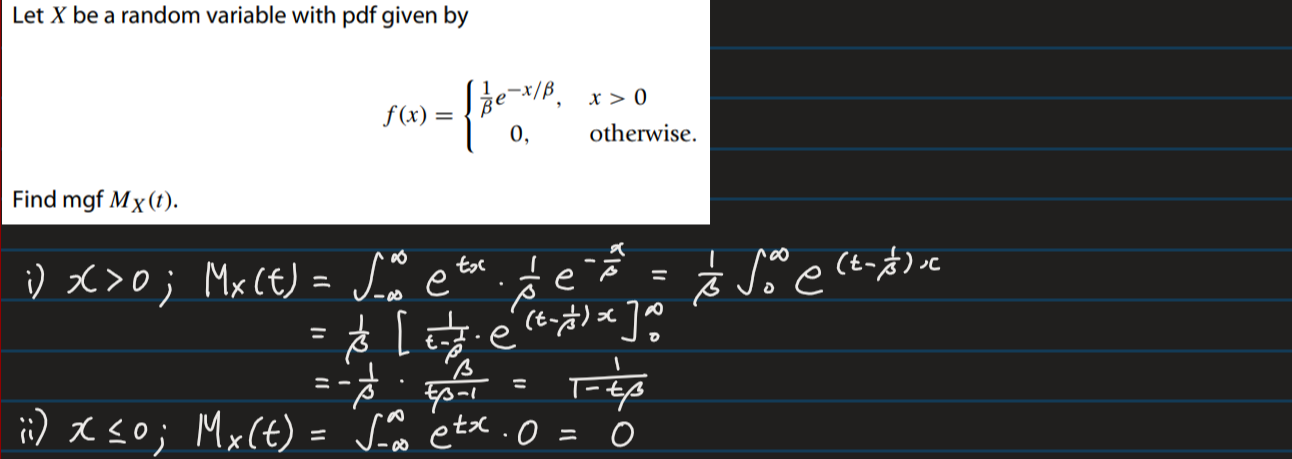 Let X be a random variable with pdf given by
f(x) = { 1/β e^{−x/β}, x > 0
0, otherwise.
Find mgf M_X(t).
i) x>0; M_X(t) = ∫_{-∞}^{∞} e^{tx} · 1/β e^{-x/β} = 1/β ∫_0^∞ e^{(t-1/β)x}
= 1/β [ 1/(t-1/β) · e^{(t-1/β)x} ]_0^∞
= - 1/β · β/(tβ-1) = 1/(1-tβ)
ii) x ≤ 0; M_X(t) = ∫_{-∞}^{∞} e^{tx} · 0 = 0